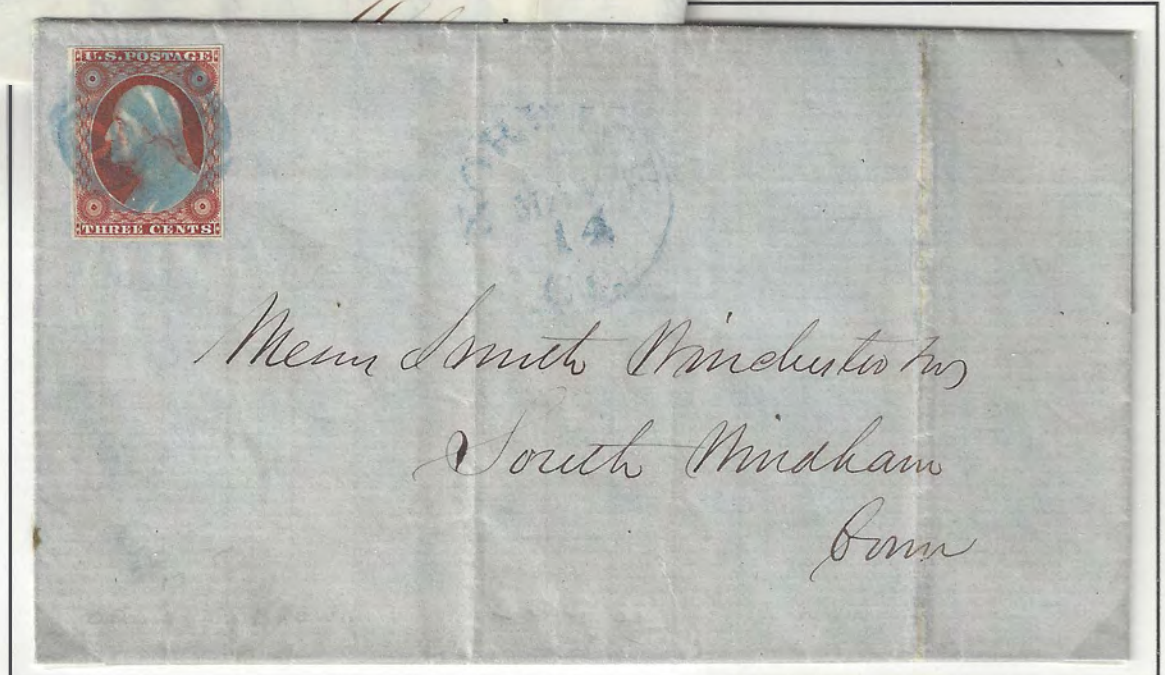 U.S. POSTAGE
THREE CENTS
NORWICH
MAY
14
CT.
Messrs Smith Winchester & Co
South Windham
Conn